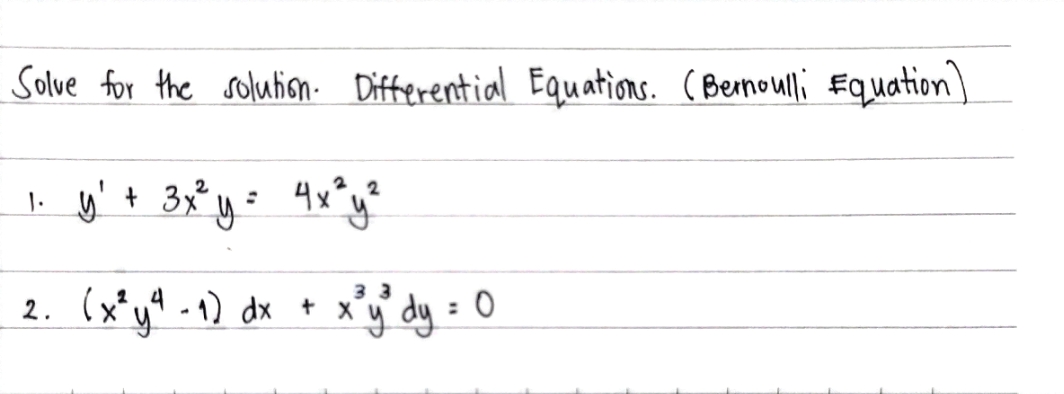 Solve for the solution. Differential Equations. (Bernoulli Equation)
1. y' + 3x²y = 4x²y²
2. (x²y⁴ - 1) dx + x³y³ dy = 0